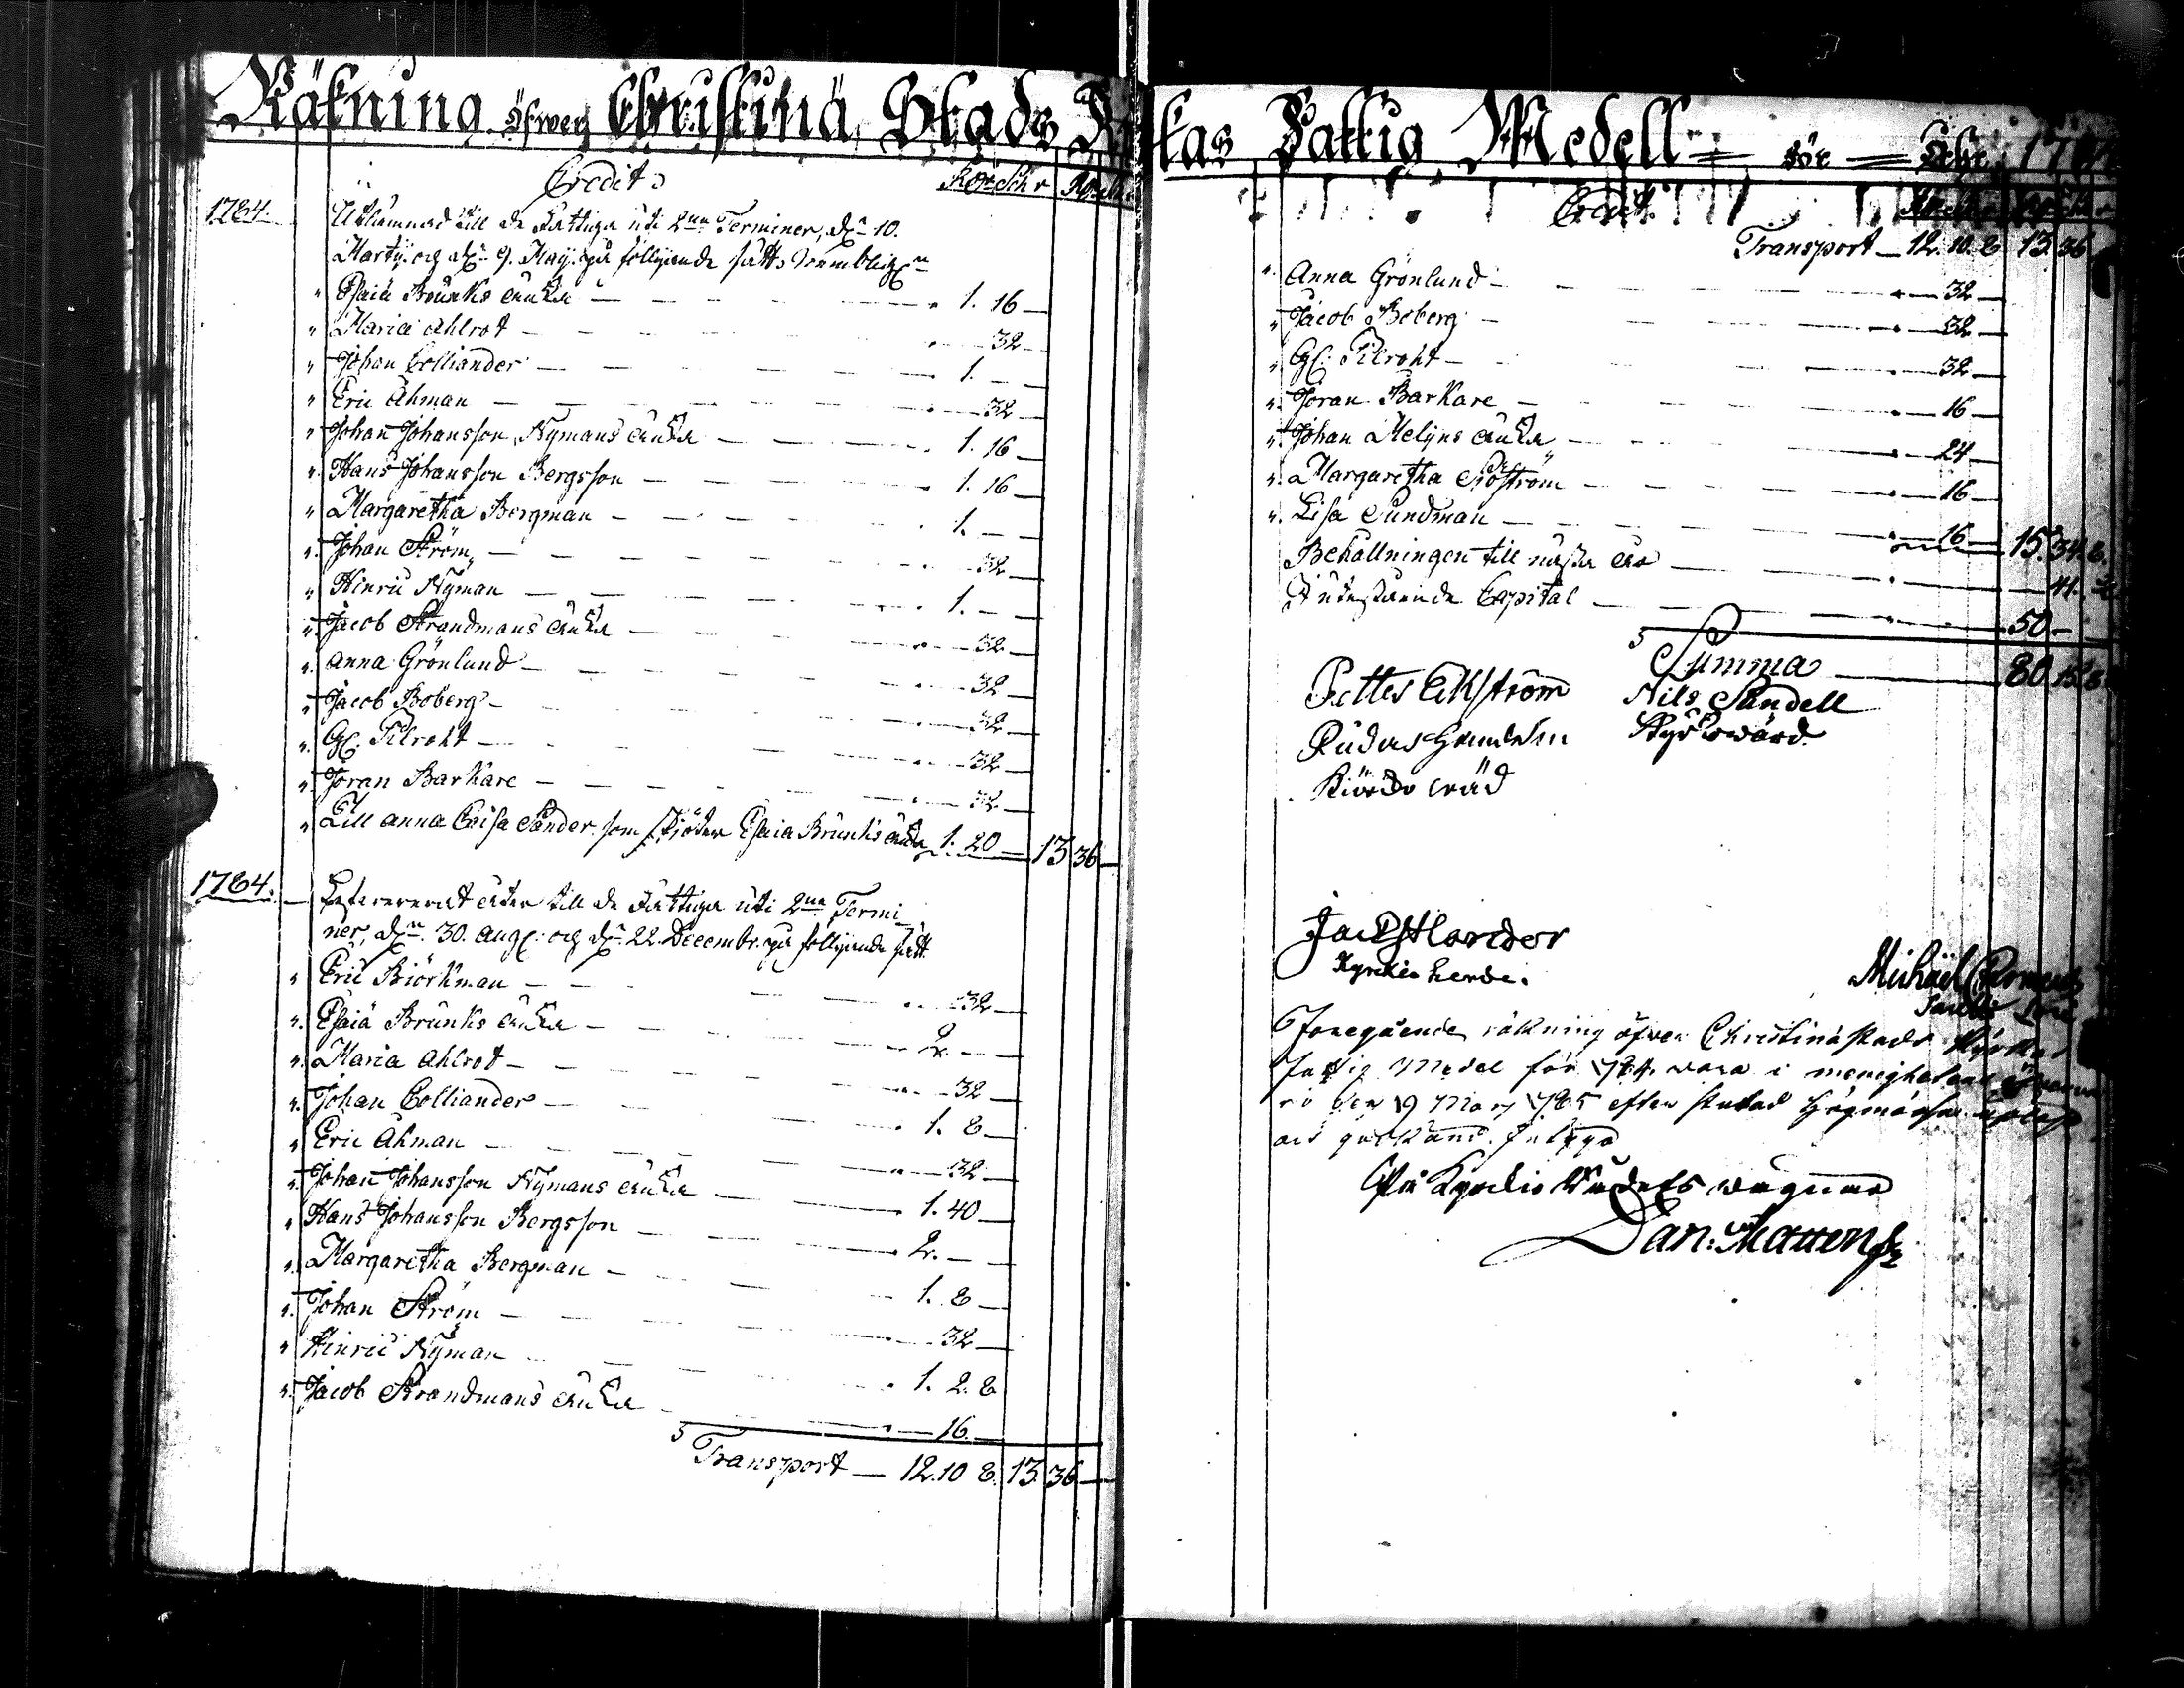 Räkning öfwer Christinä Stads Kyrkas Fattig Medell för Åhr 1784
Credit R:dr Sch r R:dr Sch
1784. Utlämnad till de Fattiga uti 2ne Terminer, d:n 10.
Martij och d:n 9. Maij på föllijande sätt, nembligen
" Esaiä Brunks änka — 1. 16 —
" Maria Ahlrot — 32 —
" Johan Colliander — 1. — —
" Eric Åhman — 32 —
" Johan Johansson Nymans änka — 1. 16 —
" Hans Johansson Bergsson — 1. 16 —
" Margaretha Bergman — 1. — —
" Johan Ström — 32 —
" Hinric Nyman — 1. — —
" Jacob Strandmans änka — 32 —
" Anna Grönlund — 32 —
" Jacob Boberg — 32 —
" G: Pilroht — 32 —
" Jöran Barkare — 32 —
" Till Anna Caisa Sander som skjöter Esaia Brunks änka 1. 20 — 13 36 —
1784. — åter till de Fattiga uti 2ne Termi
ner, d:n 30. Aug: och d:n 22. Decembr. på föllijande sätt
" Eric Biörkman — 32 —
" Esaiä Brunks änka — 2. — —
" Maria Ahlrot — 32 —
" Johan Colliander — 1. 8 —
" Eric Åhman — 32 —
" Johan Johansson Nymans änka — 1. 40 —
" Hans Johansson Bergsson — 2. — —
" Margaretha Bergman — 1. 8 —
" Johan Ström — 32 —
" Hinric Nyman — 1. 2. 8
" Jacob Strandmans änka — 16. —
Transport — 12. 10 8. 13. 36 —
Credit
Transport — 12. 10. 8 13. 36
" Anna Grönlund — 32 —
" Jacob Boberg — 32 —
" G: Pilroht — 32 —
" Jöran Barkare — 16 —
" Johan Melijns änka — 24 —
" Margaretha Sjöström — 16 —
" Lisa Sundman — 16 — 15. 34. 8.
Behållningen till nästa år — 44.
Utestående Capital — 50 —
Summa — 80 15 8
Petter Ekström Nils Sandell
Kyrkowärd
Jac
Kyrkio herde.
Michaël
Foregående räkning öfwer Christinä stads Kyrkas
Fattig Medel för 1784. wara i menighetens
ro den 19 Marj 1785 efter slutad Högmässa
och godkänd. Intyga
På Kyrkio Rådets wägnar
Dan: